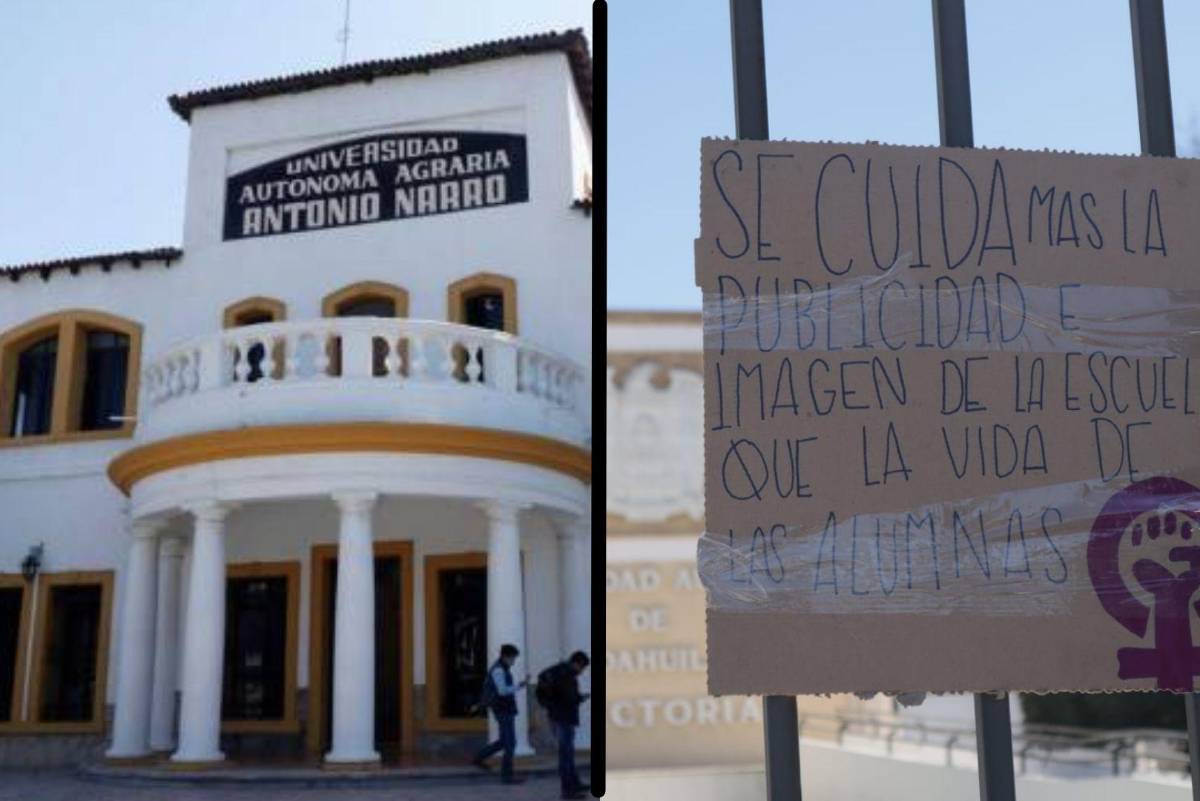 UNIVERSIDAD
AUTONOMA AGRARIA
ANTONIO NARRO
SE CUIDA MAS LA
PUBLICIDAD E
IMAGEN DE LA ESCUEL
QUE LA VIDA DE
LAS ALUMNAS
DAD A
DE
OAHUIL
CTORIA